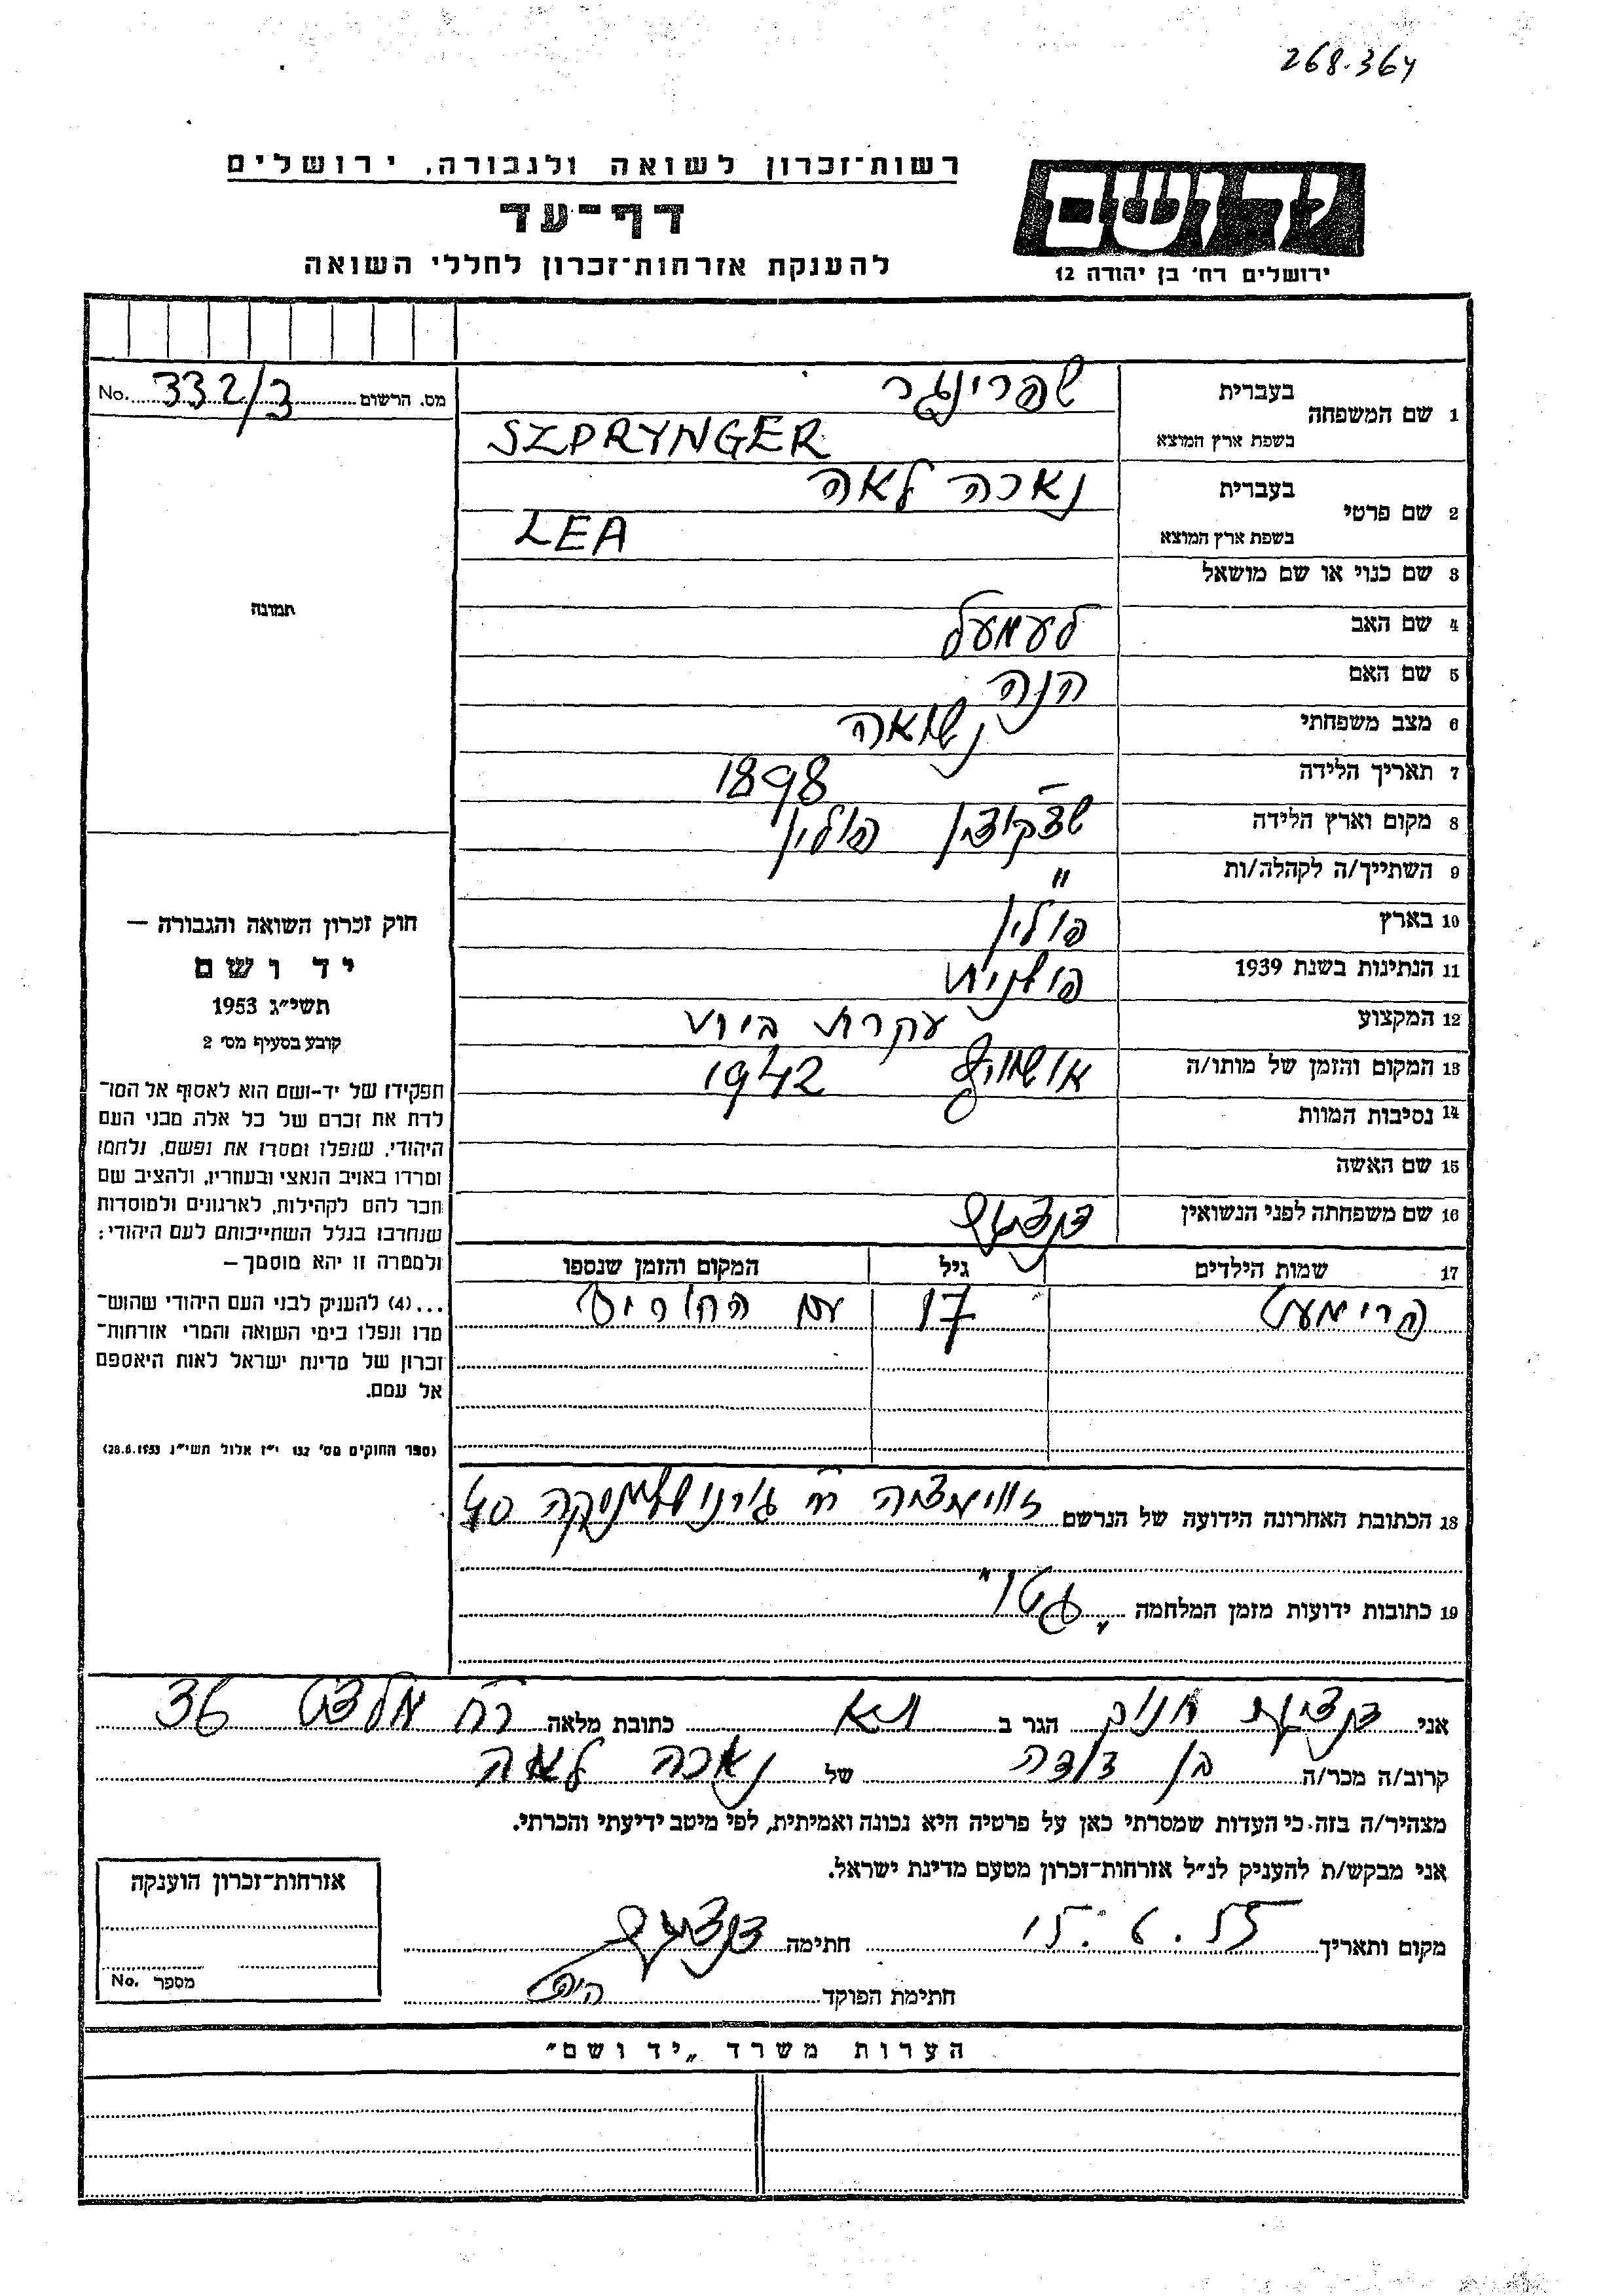 268.364
רשות־זכרון לשואה ולגבורה, ירושלים
דף־עד
להענקת אזרחות־זכרון לחללי השואה
יד ושם
ירושלים רח' בן יהודה 12
מס. הרשום 332/3 No.
1 שם המשפחה בעברית שפרינגר
בשפת ארץ המוצא SZPRYNGER
2 שם פרטי בעברית נאכה לאה
בשפת ארץ המוצא LEA
3 שם כנוי או שם מושאל
4 שם האב לעמעל
5 שם האם הנה
6 מצב משפחתי נשואה
7 תאריך הלידה 1898
8 מקום וארץ הלידה פולין
9 השתייך/ה לקהלה/ות "
10 בארץ פולין
11 הנתינות בשנת 1939 פולנית
12 המקצוע עקרת בית
13 המקום והזמן של מותו/ה אושוויץ 1942
14 נסיבות המוות
15 שם האשה
16 שם משפחתה לפני הנשואין
17 שמות הילדים גיל המקום והזמן שנספו
פרימעט 17 עם ההורים
18 הכתובת האחרונה הידועה של הנרשם 40
19 כתובות ידועות מזמן המלחמה "גטו"
תמונה
חוק זכרון השואה והגבורה –
יד ושם
תשי״ג 1953
קובע בסעיף מס' 2
תפקידו של יד-ושם הוא לאסוף אל המו־
לדת את זכרם של כל אלה מבני העם
היהודי, שנפלו ומסרו את נפשם, נלחמו
ומרדו באויב הנאצי ובעוזריו, ולהציב שם
וזכר להם לקהילות, לארגונים ולמוסדות
שנחרבו בגלל השתייכותם לעם היהודי;
ולמטרה זו יהא מוסמך –
...(4) להעניק לבני העם היהודי שהוש־
מדו ונפלו בימי השואה והמרי אזרחות־
זכרון של מדינת ישראל לאות היאספם
אל עמם.
(ספר החוקים מס' 132 י״ז אלול תשי״ג 28.8.1953)
אני חנוך הגר ב ת״א כתובת מלאה רח 36
קרוב/ה מכר/ה בן דודה של נאכה לאה
מצהיר/ה בזה כי העדות שמסרתי כאן על פרטיה היא נכונה ואמיתית, לפי מיטב ידיעתי והכרתי.
אני מבקש/ת להעניק לנ״ל אזרחות־זכרון מטעם מדינת ישראל.
מקום ותאריך 15.6.55 חתימה
חתימת הפוקד
אזרחות־זכרון הוענקה
מספר No.
הערות משרד „יד ושם"